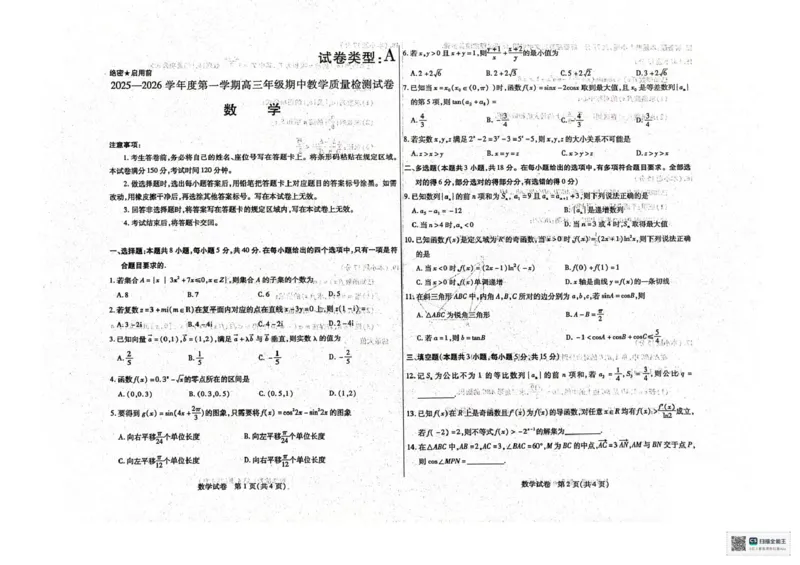 试卷类型:A
绝密★启用前
2025—2026 学年度第一学期高三年级期中教学质量检测试卷
数 学
注意事项:
1. 考生答卷前,务必将自己的姓名、座位号写在答题卡上。将条形码粘贴在规定区域。
本试卷满分 150 分,考试时间 120 分钟。
2. 做选择题时,选出每小题答案后,用铅笔把答题卡上对应题目的答案标号涂黑。如需
改动,用橡皮擦干净后,再选涂其他答案标号。写在本试卷上无效。
3. 回答非选择题时,将答案写在答题卡的规定区域内,写在本试卷上无效。
4. 考试结束后,将答题卡交回。
一、选择题:本题共 8 小题,每小题 5 分,共 40 分. 在每小题给出的四个选项中,只有一项是符
合题目要求的.
1. 若集合 A={x | 3x²+7x≤0,x∈Z},则集合 A 的子集的个数为
A. 8 B. 7 C. 6 D. 5
2. 若复数 z=3+mi(m∈R)在复平面内对应的点在直线 x-3y=0 上,则 z(1-i)=
A. 3-2i B. 4-4i C. 4-2i D. 2-4i
3. 已知向量 a=(0,1),b=(1,2),满足 a+λb 与 b 垂直,则实数 λ 的值为
A. 2/5 B. 1/5 C. -1/5 D. -2/5
4. 函数 f(x)=0.3ˣ-√x 的零点所在的区间是
A. (0,0.3) B. (0.3,0.5) C. (0.5,1) D. (1,2)
5. 要得到 g(x)=sin(4x+2π/3)的图象,只需要将 f(x)=cos²2x-sin²2x 的图象
A. 向右平移 π/24 个单位长度 B. 向左平移 π/24 个单位长度
C. 向左平移 π/12 个单位长度 D. 向右平移 π/12 个单位长度
数学试卷 第 1 页(共 4 页)
6. 若 x,y>0 且 x+y=1,则 (y+1)/x+(x+2)/y 的最小值为
A. 2+2√6 B. 2+2√3 C. 5+2√2 D. 3+2√6
7. 已知当 x=x₀(x₀∈(0,π))时,函数 f(x)=sinx-2cosx 取到最大值,且 x₀ 是等差数列{aₙ}
的第 5 项,则 tan(a₂+a₈)=
A. 4/3 B. -3/4 C. -4/3 D. 3/4
8. 若实数 x,y,z 满足 2ˣ-2=3ʸ-3=5ᶻ-5,则 x,y,z 的大小关系不可能是
A. z>x>y B. x=y=z C. x>y>z D. z>y>x
二、多选题(本题共 3 小题,共 18 分。在每小题给出的选项中,有多项符合题目要求。全部选
对的得 6 分,部分选对的得部分分,有选错的得 0 分)
9. 已知数列{aₙ}的前 n 项和为 Sₙ,a₁=9 且 aₙ=aₙ₊₁+3,则下列说法正确的是
A. a₅-a₁=-12 B. {aₙ}是递增数列
C. 当 n>4 时,aₙ<0 D. 当 n=3 或 4 时,Sₙ 取得最大值
10. 已知函数 f(x)是定义域为 R 的奇函数,当 x>0 时,f(x)=(2x+1)ln²x,则下列说法正确
的是
A. 当 x<0 时,f(x)=(2x-1)ln²(-x) B. f(0)+f(1)=1
C. 当 x>0 时,f(x)单调递增 D. x 轴是曲线 y=f(x)的一条切线
11. 在斜三角形 ABC 中,内角 A,B,C 所对的边分别为 a,b,c,若 sinA=cosB,则
A. △ABC 为锐角三角形 B. A-B=π/2
C. 若 a=1,则 b=tanB D. -1<cosA+cosB+cosC≤5/4
三、填空题(本题共 3 小题,每小题 5 分,共 15 分)
12. 记 Sₙ 为公比不为 1 的等比数列{aₙ}的前 n 项和,若 a₃=1/4,S₃=3/4,则公比 q=
.
13. 已知 f(x)在 R 上是奇函数且 f′(x)为 f(x)的导函数,对任意 x∈R 均有 f(x)>f′(x)/ln2 成立,
若 f(-2)=2,则不等式 f(x)>-2ˣ⁻¹ 的解集为 .
14. 在△ABC 中,AB=2,AC=3,∠BAC=60°,M 为 BC 的中点,AC=3AN,AM 与 BN 交于点 P,
则 cos∠MPN= .
数学试卷 第 2 页(共 4 页)
扫描全能王